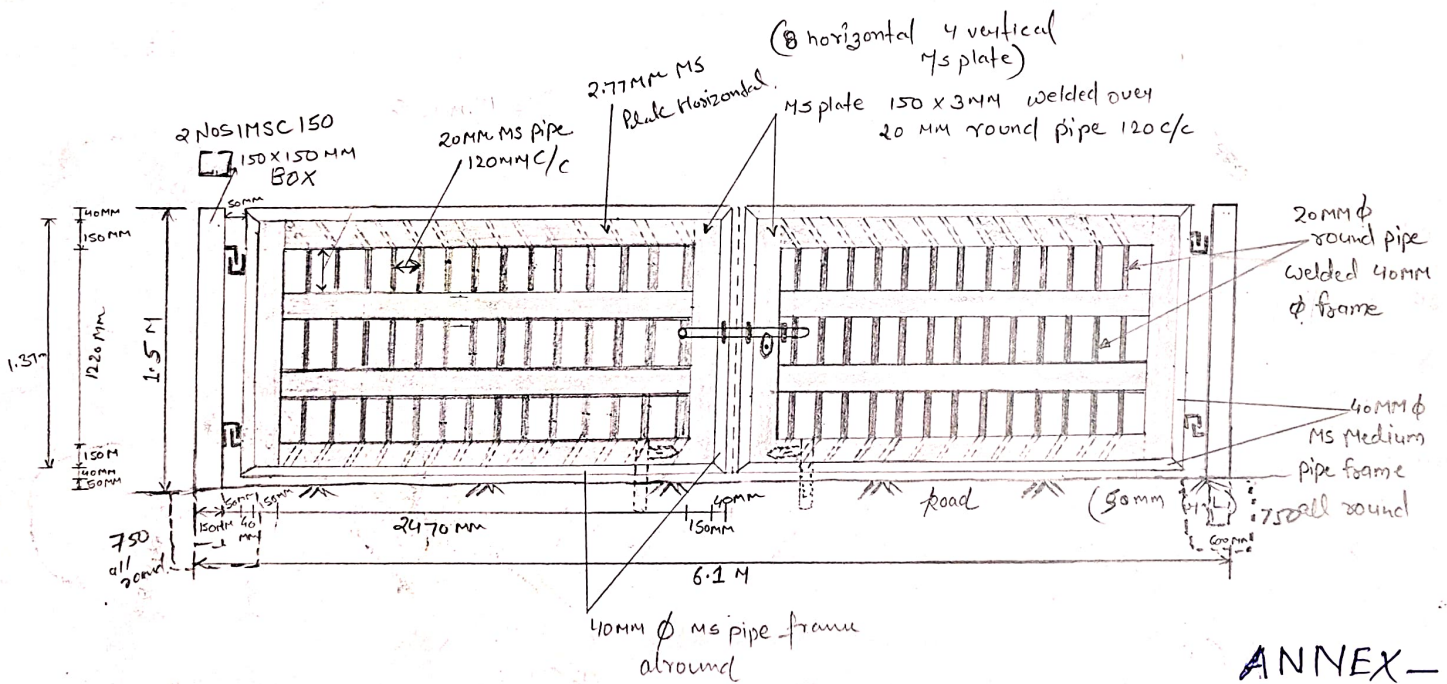 (8 horizontal 4 vertical
Ms plate)
2.77MM MS
Horizontal.
MS plate 150 x 3MM welded over
20 MM round pipe 120 c/c
2 NOS IMSC 150
150 X 150 MM
BOX
20MM MS pipe
120MM C/C
50MM
40MM
150MM
1220 MM
1.5 M
150M
40MM
50MM
20MM ϕ
round pipe
welded 40MM
ϕ frame
40MM ϕ
MS Medium
pipe frame
(50mm all round
Road
50MM
150MM
40
MM
2470 MM
150MM
40MM
750
all
round
750
600MM
6.1 M
40MM ϕ MS pipe frame
alround
ANNEX_